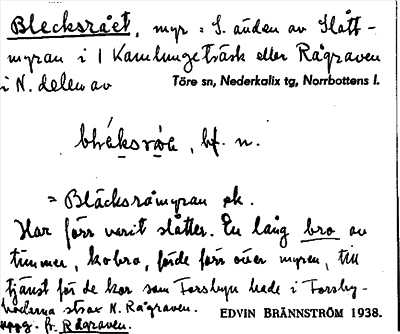 Blecksrået, myr = S. änden av Slått-
myran i 1 Kamlungeträsk eller Rågraven
i N. delen av Töre sn, Nederkalix tg, Norrbottens l.
bf. n.
= Bläcksråmyran pk.
Har förr varit slåtter. En lång bro av
timmer, kobro, förde förr över myren, till
tjänst för de kor som Forsbyn hade i Forsby-
bodarna strax N. Rågraven.
uppg. fr. Rågraven.
EDVIN BRÄNNSTRÖM 1938.